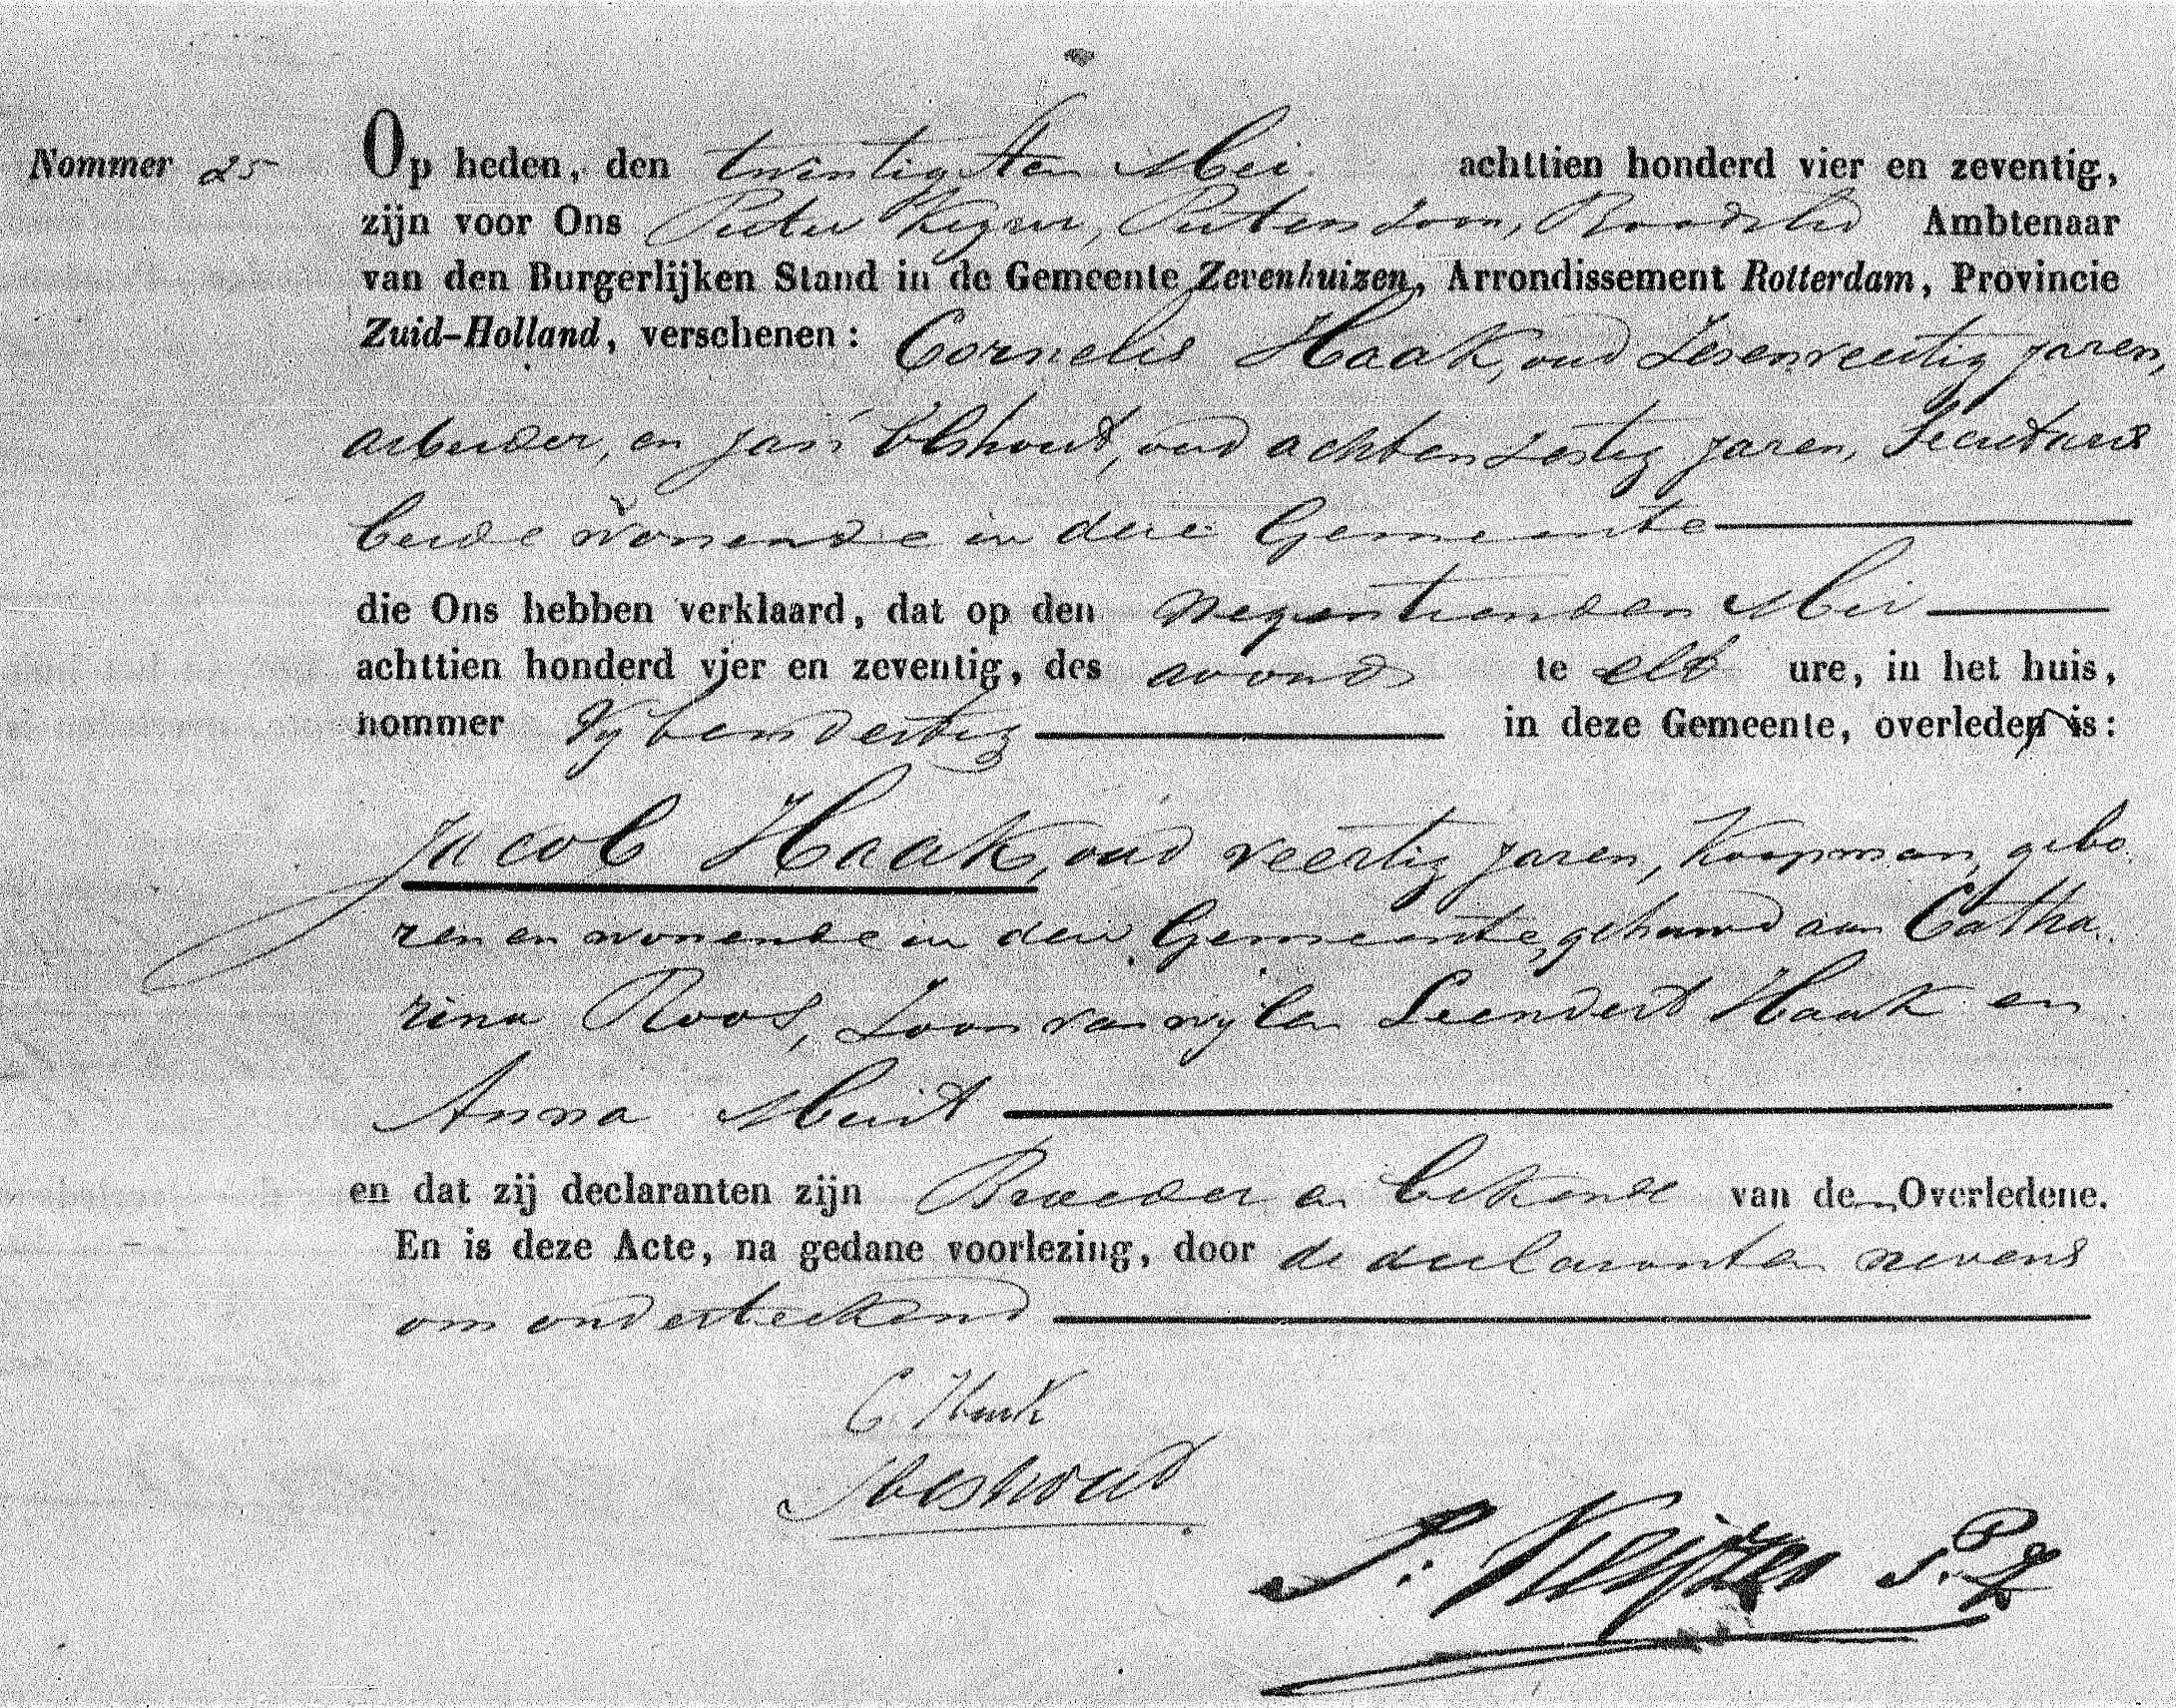 Nommer 25
Op heden, den twintigsten Mei achttien honderd vier en zeventig,
zijn voor Ons Pieter Keyzer, Pieterszoon, Raadslid Ambtenaar
van den Burgerlijken Stand in de Gemeente Zevenhuizen, Arrondissement Rotterdam, Provincie
Zuid-Holland, verschenen: Cornelis Haak, oud Zesenveertig jaren,
arbeider, en Jan Elshout, oud achtenzestig jaren, Secretaris
beide wonende in deze Gemeente
die Ons hebben verklaard, dat op den negentienden Mei
achttien honderd vier en zeventig, des avonds te elf ure, in het huis,
nommer Vijfendertig in deze Gemeente, overleden is:
Jacob Haak, oud veertig jaren, Koopman, gebo-
ren en wonende in deze Gemeente, gehuwd aan Catha-
rina Roos, Zoon van wijlen Leendert Haak en
Anna Muit
en dat zij declaranten zijn Broeder en bekende van den Overledene.
En is deze Acte, na gedane voorlezing, door de declaranten nevens
ons onderteekend
C. Haak
J Elshout
P. Keijzer P.Z